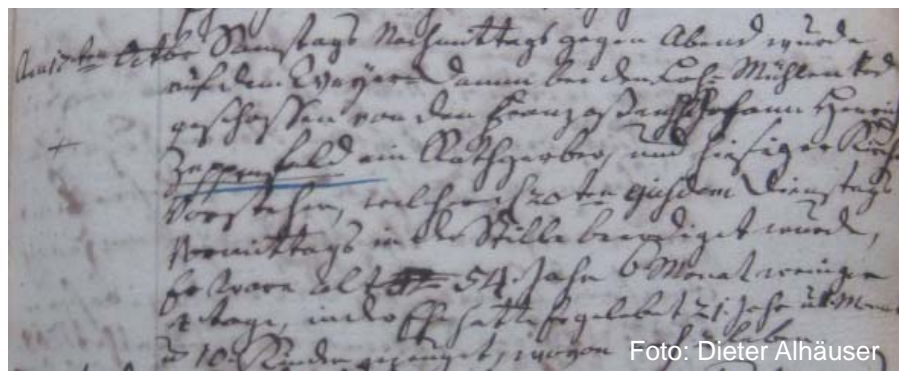 Am 17ten 8tbr Samstags Nachmittags gegen Abend wurde
auf dem Weyer Damm bei den Lohe Mühlen tod
geschossen von den Franzoßen Johann Henrich
Zeppenfeld ein Rothgerber, und hiesiger Kirchen
Vorsteher, welcher 20ten ejusdem Dienstags
Vormittags in der Stille beerdiget wurde,
Er ware alt 54. Jahr 6 Monat weniger
tage, in der Ehe hatte er gelebet 21. Jahr Monat
10. Kinder gezeuget, wovon
Foto: Dieter Alhäuser